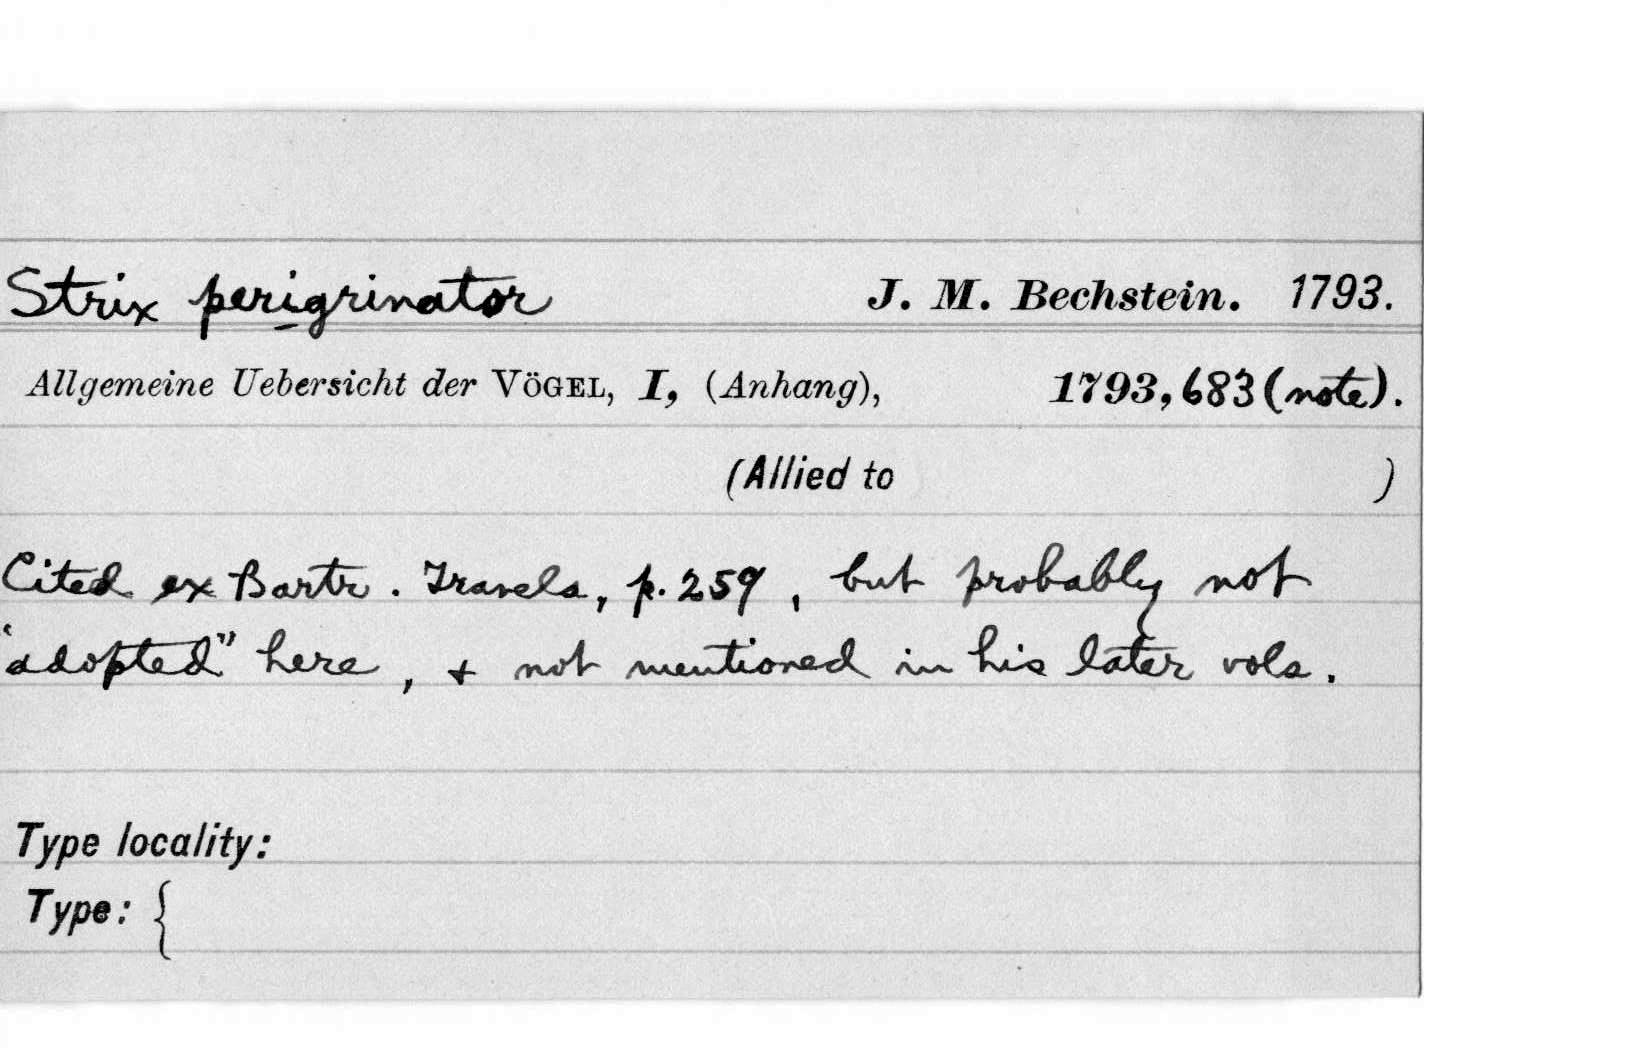 Strix perigrinator J. M. Bechstein. 1793.
Allgemeine Uebersicht der VÖGEL, I, (Anhang), 1793, 683 (note).
(Allied to )
Cited ex Bartr. Travels, p. 259, but probably not
"adopted" here, + not mentioned in his later vols.
Type locality:
Type: {